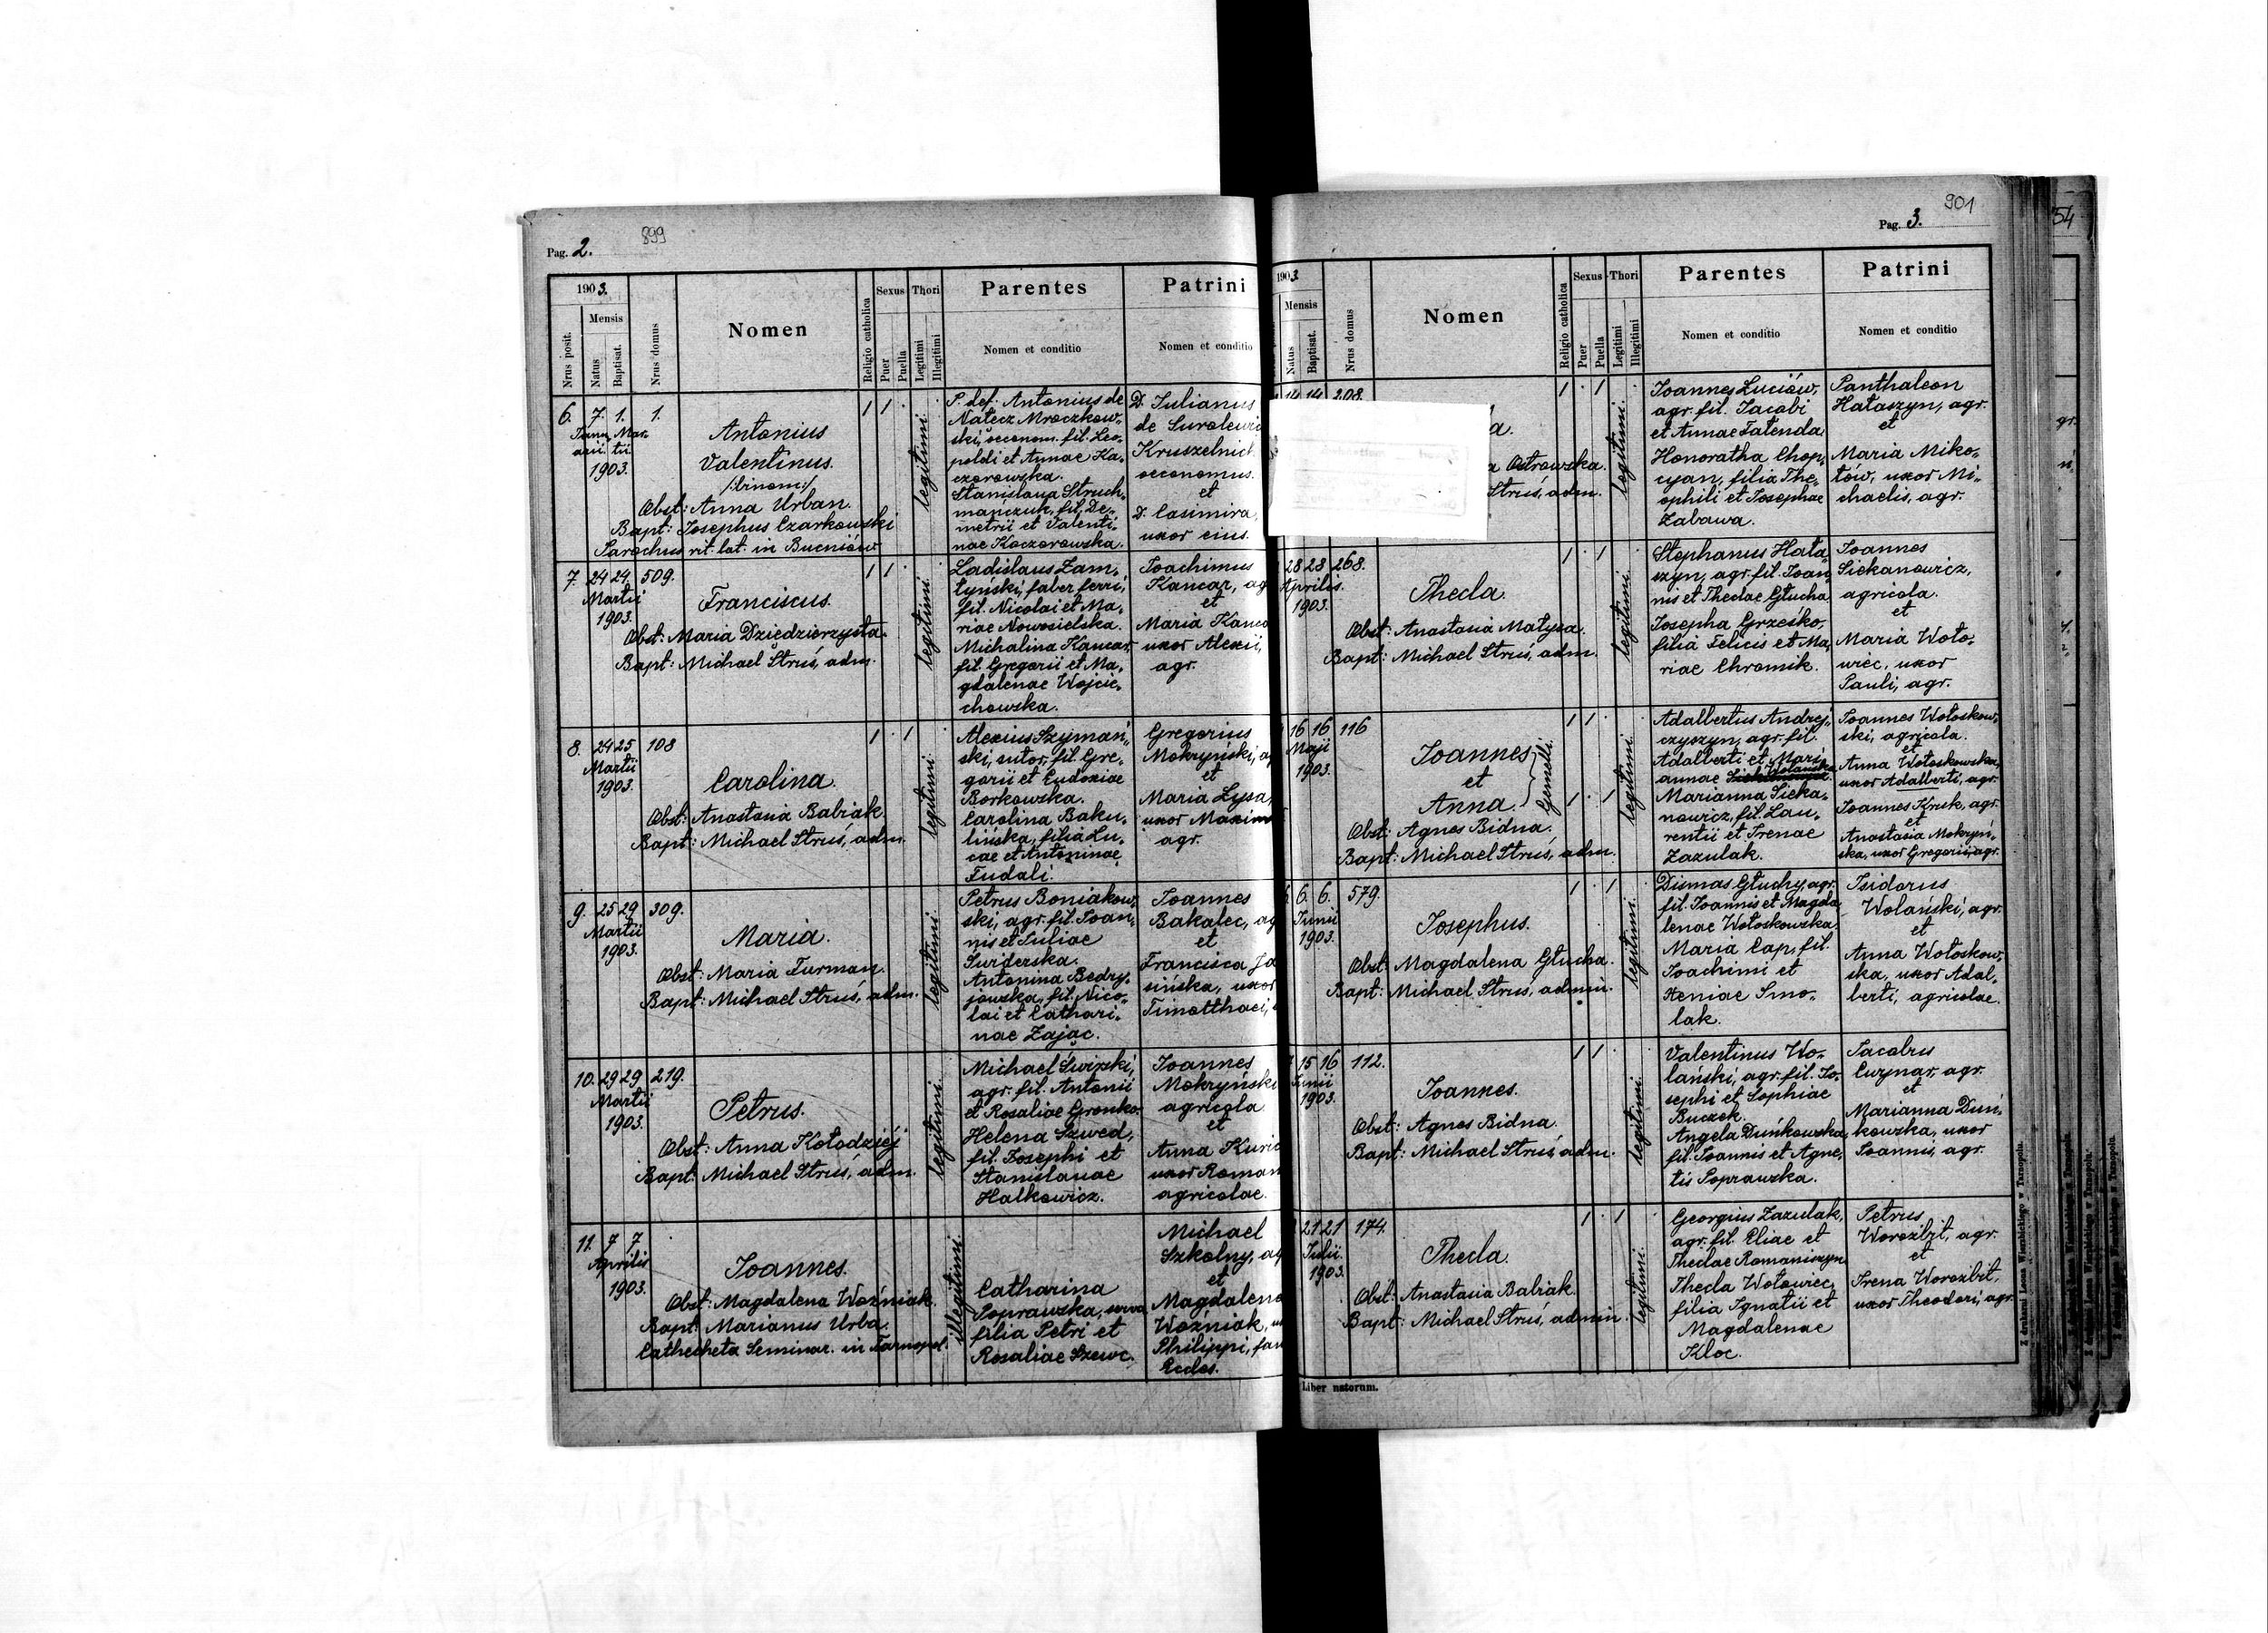 899
Pag. 2.
1903.
Mensis
Nrus posit.
Natus
Baptisat.
Nrus domus
Nomen
Religio catholica
Sexus
Puer
Puella
Thori
Legitimi
Illegitimi
Parentes
Nomen et conditio
Patrini
Nomen et conditio
6. 7. 1. 1.
Janu- Mar-
arii. tii.
1903.
Antonius
Valentinus.
/:binom:/
Obst: Anna Urban.
Bapt: Josephus Czarkowski
Parochus rit. lat. in Bucniów
legitimi.
P. def. Antonius de
Natecz Mroczkow-
ski, oeconom. fil. Leo-
poldi et Annae Ka-
czorowska.
Stanislaua Struch-
manczuk, fil. De-
metrii et Valenti-
nae Koczorowska.
D. Julianus
de
Kruszelnic
oeconomus.
et
D. Casimira,
uxor eius.
7. 24 24 509.
Martii
1903.
Franciscus.
Obst: Maria Dziedzierzysta.
Bapt: Michael Struś, adm.
legitimi.
Ladislaus Zam-
łyński, faber ferri,
fil. Nicolai et Ma-
riae Nowosielska.
Michalina Kancar,
fil. Gregorii et Ma-
gdalenae Wojcie-
chowska.
Joachimus
Kancar, ag
et
Maria Kanca
uxor Alexii,
agr.
8. 24 25 108
Martii
1903.
Carolina.
Obst: Anastasia Babiak.
Bapt: Michael Struś, adm.
legitimi.
Alexius Szymań-
ski, sutor, fil. Gre-
gorii et Eudoxiae
Borkowska.
Carolina Baku-
lińska, filia Lu-
cae et Antoninae
Fudali.
Gregorius
Mokryński, a
et
Maria Lysa,
uxor Maxim
agr.
9. 25 29 309.
Martii
1903.
Maria.
Obst: Maria Furman.
Bapt: Michael Struś, adm.
legitimi.
Petrus Boniakow-
ski, agr. fil. Joan-
nis et Juliae
Swiderska.
Antonina Bedry-
jowska, fil. Nico-
lai et Cathari-
nae Zając.
Joannes
Bakalec, ag
et
Francisca Ja
sińska, uxor
Timotthaei,
10. 29 29 219.
Martii
1903.
Petrus.
Obst: Anna Kołodziej
Bapt: Michael Struś, adm.
legitimi.
Michael Swirski,
agr. fil. Antonii
et Rosaliae Gronko.
Helena Szwed,
fil. Josephi et
Stanislauae
Halkowicz.
Joannes
Mokryński
agricola
et
Anna Kuric
uxor Roman
agricolae.
11. 7 7
Aprilis
1903.
Joannes.
Obst: Magdalena Woźniak.
Bapt: Marianus Urba.
Cathecheta Seminar. in Tarnopol.
illegitimi.
Catharina
Poprawska, serva
filia Petri et
Rosaliae Szewc.
Michael
Szkolny, ag
et
Magdalena
Woźniak, u
Philippi, fam
Ecclos.
901
Pag. 3.
1903
Mensis
Natus
Baptisat.
Nrus domus
Nomen
Religio catholica
Sexus
Puer
Puella
Thori
Legitimi
Illegitimi
Parentes
Nomen et conditio
Patrini
Nomen et conditio
14 14 208.
a.
a Ostrowska.
Struś, adm.
legitimi.
Joannes Luciów,
agr. fil. Jacobi
et Annae Talenda.
Honoratha Chop-
cyan, filia The-
ophili et Josephae
Zabawa.
Panthaleon
Hałaszyn, agr.
et
Maria Miko-
tów, uxor Mi-
chaelis, agr.
28 28 268.
Aprilis.
1903.
Thecla.
Obst: Anastasia Matysa.
Bapt: Michael Struś, adm.
legitimi.
Stephanus Hała-
szyn, agr. fil. Joan-
nis et Theclae Głucha.
Josepha Grześko,
filia Felicis et Ma-
riae Chromik.
Joannes
Siekanowicz,
agricola.
et
Maria Woło-
wiec, uxor
Pauli, agr.
16 16 116
Maji
1903.
Joannes
et
Anna.
Gemelli.
Obst: Agnes Bidna.
Bapt: Michael Struś, adm.
legitimi.
Adalbertus Andrej-
czyszyn, agr. fil.
Adalberti et Mari-
annae Wolańska
Marianna Sieka-
nowicz, fil. Lau-
rentii et Irenae
Zazulak.
Joannes Wołoskow-
ski, agricola.
et
Anna Wołoskowska,
uxor Adalberti, agr.
Joannes Kruk, agr.
et
Anastasia Mokryń-
ska, uxor Gregorii, agr.
6. 6. 579.
Junii
1903.
Josephus.
Obst: Magdalena Głucha.
Bapt: Michael Struś, admin.
legitimi.
Dismas Głuchy, agr.
fil. Joannis et Magda-
lenae Wołoskowska.
Maria Cap, fil.
Joachimi et
Xeniae Smo-
lak.
Isidorus
Wolański, agr.
et
Anna Wołoskow-
ska, uxor Adal-
berti, agricolae.
15 16 112.
Junii
1903.
Joannes.
Obst: Agnes Bidna.
Bapt: Michael Struś, adm.
legitimi.
Valentinus Wo-
lański, agr. fil. Jo-
sephi et Sophiae
Buczek.
Angela Duńkowska,
fil. Joannis et Agne-
tis Poprawska.
Jacobus
Cuznar, agr.
et
Marianna Duń-
kowska, uxor
Joannis, agr.
21 21 174.
Julii
1903.
Thecla.
Obst: Anastasia Babiak.
Bapt: Michael Struś, admin.
legitimi.
Georgius Zazulak,
agr. fil. Eliae et
Theclae Romaniszyn
Thecla Wołowiec,
filia Ignatii et
Magdalenae
Kloc.
Petrus
Worozbit, agr.
et
Irena Worozbit,
uxor Theodori, agr.
Liber natorum.
Z drukarni Leona Wierzbickiego w Tarnopolu.
54
gr.